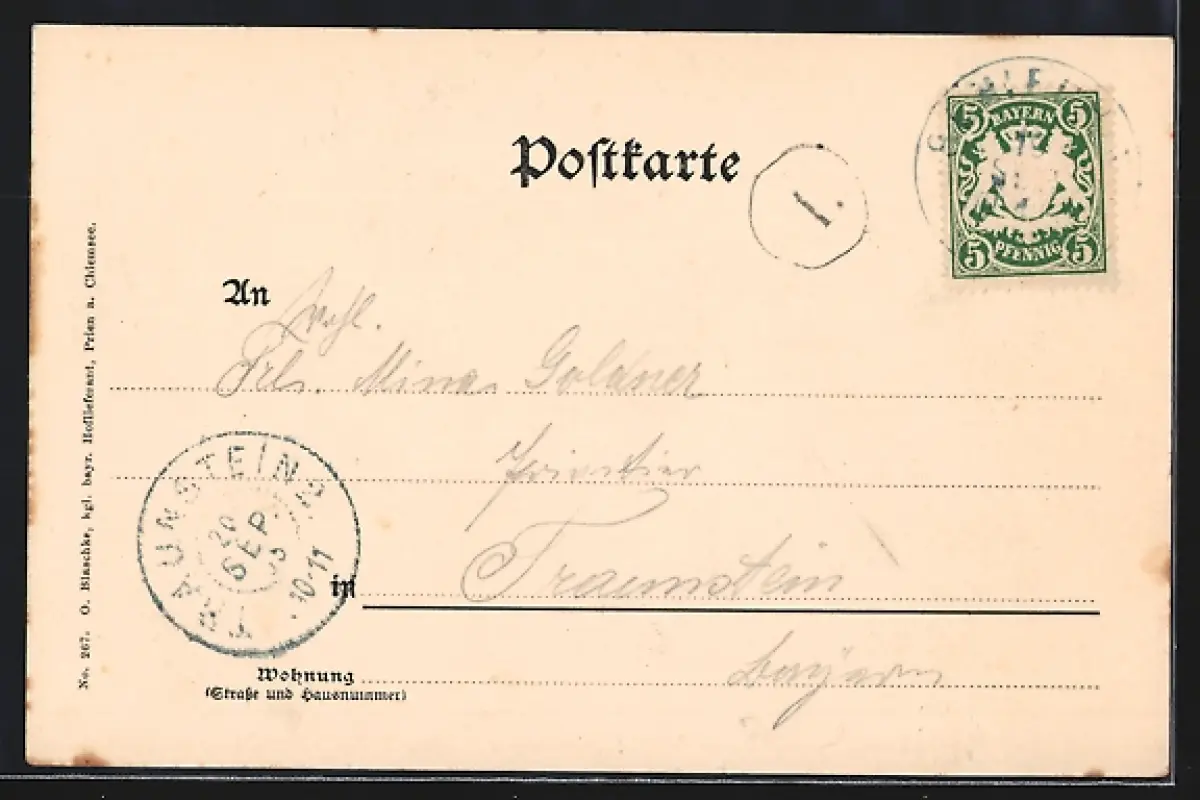 Postkarte
1.
5 5
BAYERN
5 5
PFENNIG
An
Frls. Mina Goldner
in Traunstein
Bayern
TRAUNSTEIN 2.
20 SEP
10-11
Wohnung
(Straße und Hausnummer)
No. 267. O. Blaschke, kgl. bayr. Hoflieferant, Prien a. Chiemsee.